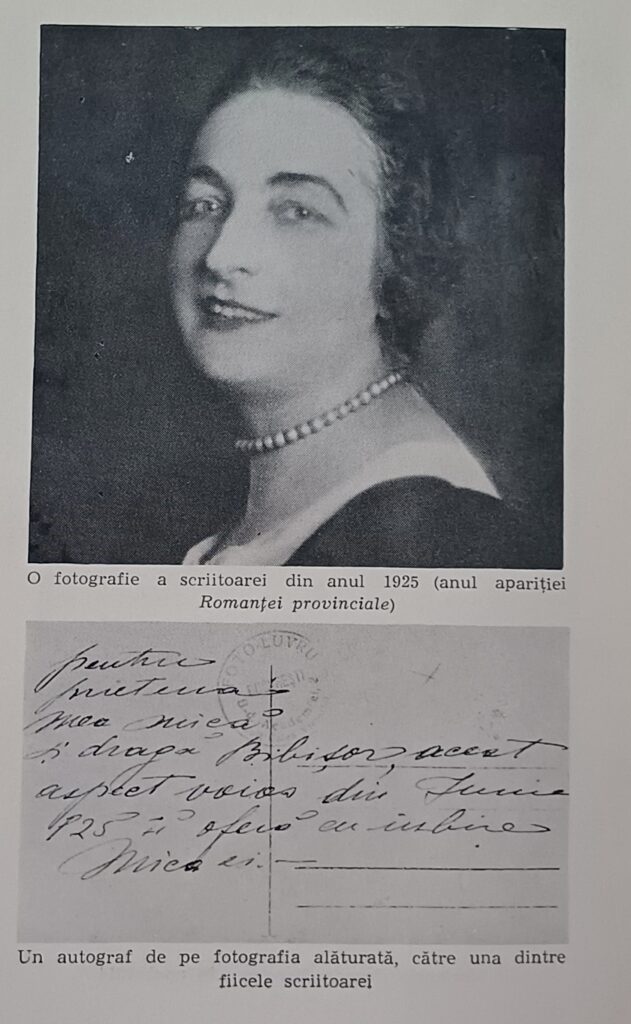 O fotografie a scriitoarei din anul 1925 (anul apariției
Romanței provinciale)
FOTO-LUVRU
pentru
prietena
mea mică
și dragă Bibișor, acest
aspect voios din Iunie
925 îi oferă cu iubire
Mica ei.
Un autograf de pe fotografia alăturată, către una dintre
fiicele scriitoarei